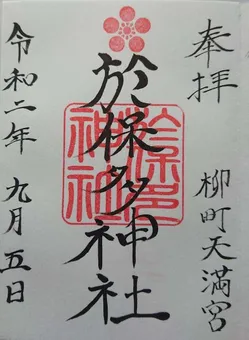 奉拝
柳町天満宮
於保多神社
令和二年九月五日